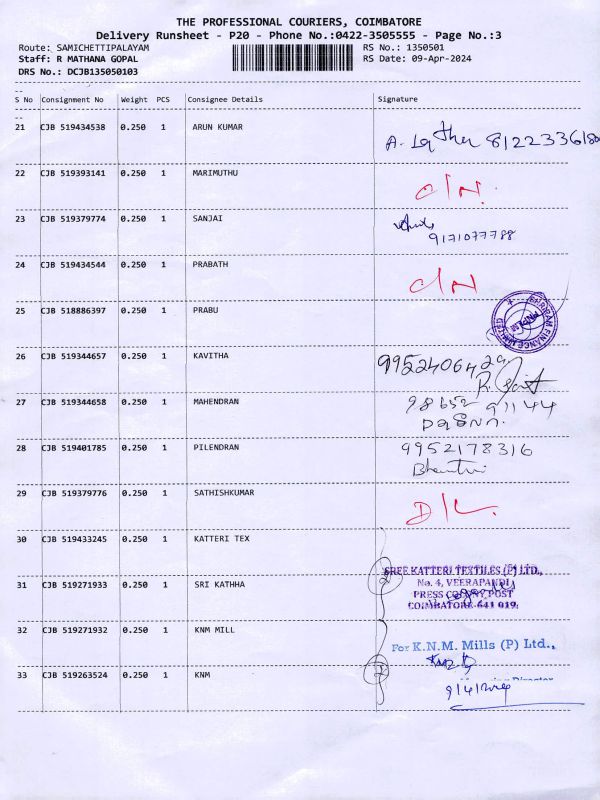 THE PROFESSIONAL COURIERS, COIMBATORE
Delivery Runsheet - P20 - Phone No.:0422-3505555 - Page No.:3
Route: SAMICHETTIPALAYAM RS No.: 1350501
Staff: R MATHANA GOPAL RS Date: 09-Apr-2024
DRS No.: DCJB135050103
--
S No Consignment No Weight PCS Consignee Details Signature
--
21 CJB 519434538 0.250 1 ARUN KUMAR
22 CJB 519393141 0.250 1 MARIMUTHU
23 CJB 519379774 0.250 1 SANJAI
9171077788
24 CJB 519434544 0.250 1 PRABATH
25 CJB 518886397 0.250 1 PRABU
SHRIRAM FINANCE LIMITED
26 CJB 519344657 0.250 1 KAVITHA 9952406429
27 CJB 519344658 0.250 1 MAHENDRAN 98652 91144
28 CJB 519401785 1 0.250 PILENDRAN 9952178316
29 CJB 519379776 0.250 1 SATHISHKUMAR D/L
30 CJB 519433245 0.250 1 KATTERI TEX
SREE KATTERI TEXTILES (P) LTD.,
31 CJB 519271933 0.250 1 SRI KATHHA No. 4, VEERAPANDI,
PRESS COLONY POST
COIMBATORE-641 019.
32 CJB 519271932 0.250 1 KNM MILL
For K.N.M. Mills (P) Ltd.,
33 CJB 519263524 0.250 1 KNM
Director
9/4/2024